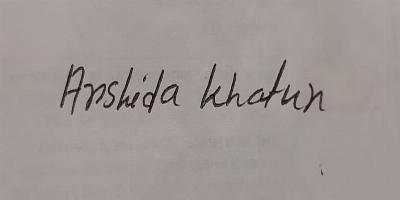 Arshida khatun